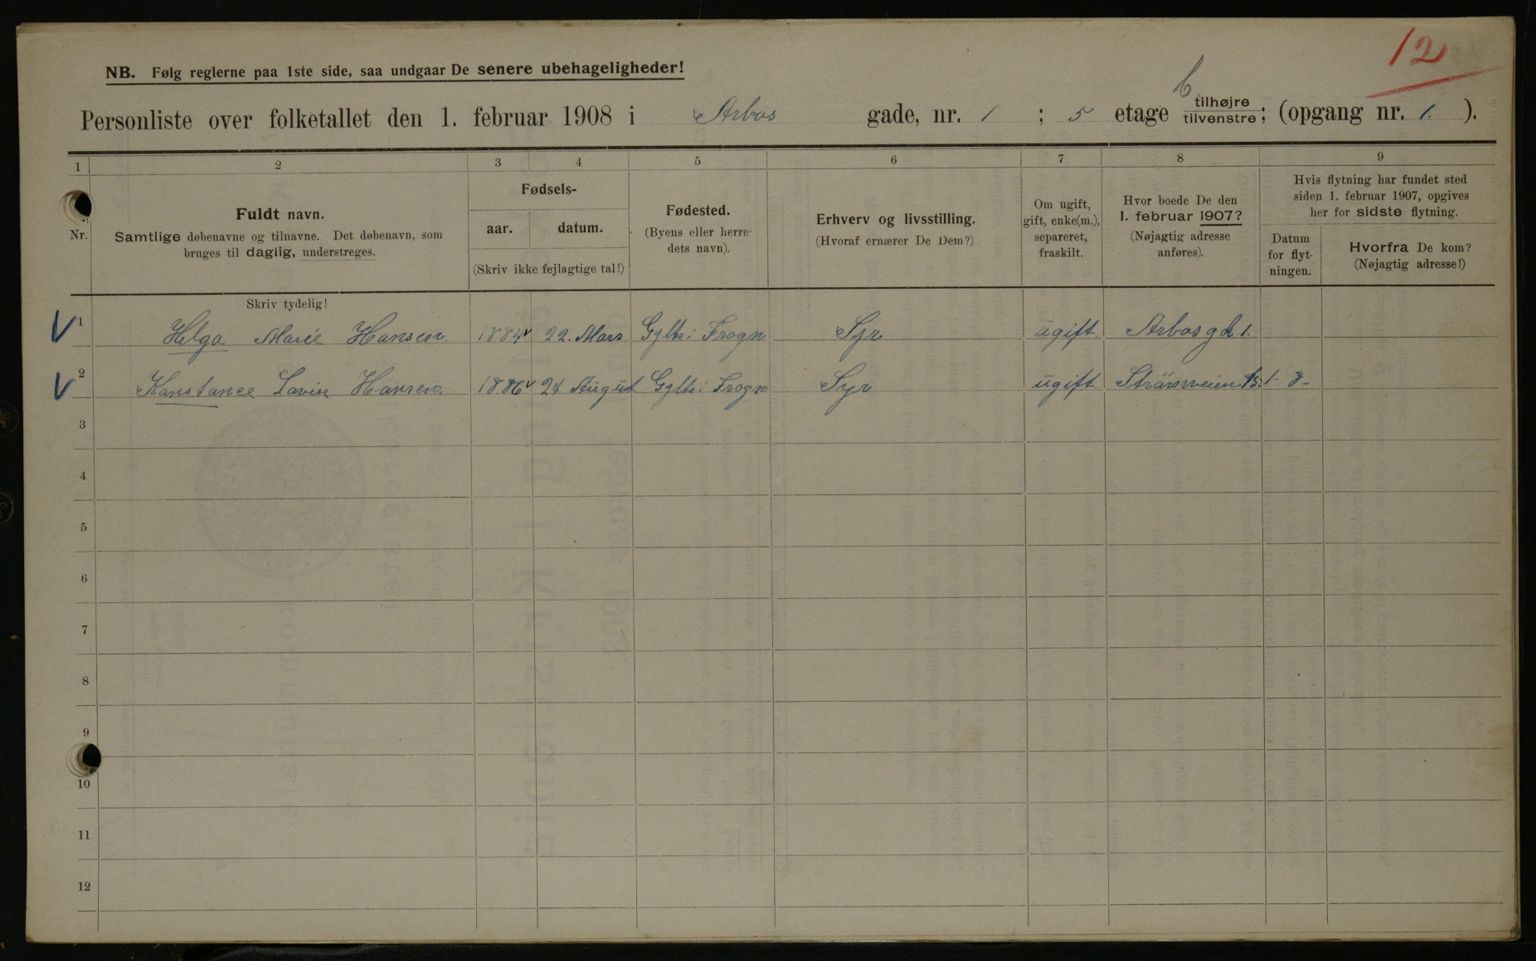 12
NB. Følg reglerne paa 1ste side, saa undgaar De senere ubehageligheder!
Personliste over folketallet den 1. februar 1908 i Arbos gade, nr. 1 ; 5 etage tilhøjre tilvenstre; (opgang nr. 1. ).
1 2 3 4 5 6 7 8 9
Nr.
Fuldt navn.
Samtlige døbenavne og tilnavne. Det døbenavn, som
bruges til daglig, understreges.
Fødsels-
aar. datum.
(Skriv ikke fejlagtige tal!)
Fødested.
(Byens eller herre-
dets navn).
Erhverv og livsstilling.
(Hvoraf ernærer De Dem?)
Om ugift,
gift, enke(m.),
separeret,
fraskilt.
Hvor boede De den
1. februar 1907?
(Nøjagtig adresse
anføres).
Hvis flytning har fundet sted
siden 1. februar 1907, opgives
her for sidste flytning.
Datum
for flyt-
ningen.
Hvorfra De kom?
(Nøjagtig adresse!)
Skriv tydelig!
1 Helga Marie Hansen. 1884 22. Mars Gylte i Frogn Syr ugift. Arbosgd 1.
2 Konstance Lovise Hansen. 1886 24 August Gylte i Frogn Syr ugift. 1-8-
3
4
5
6
7
8
9
10
11
12